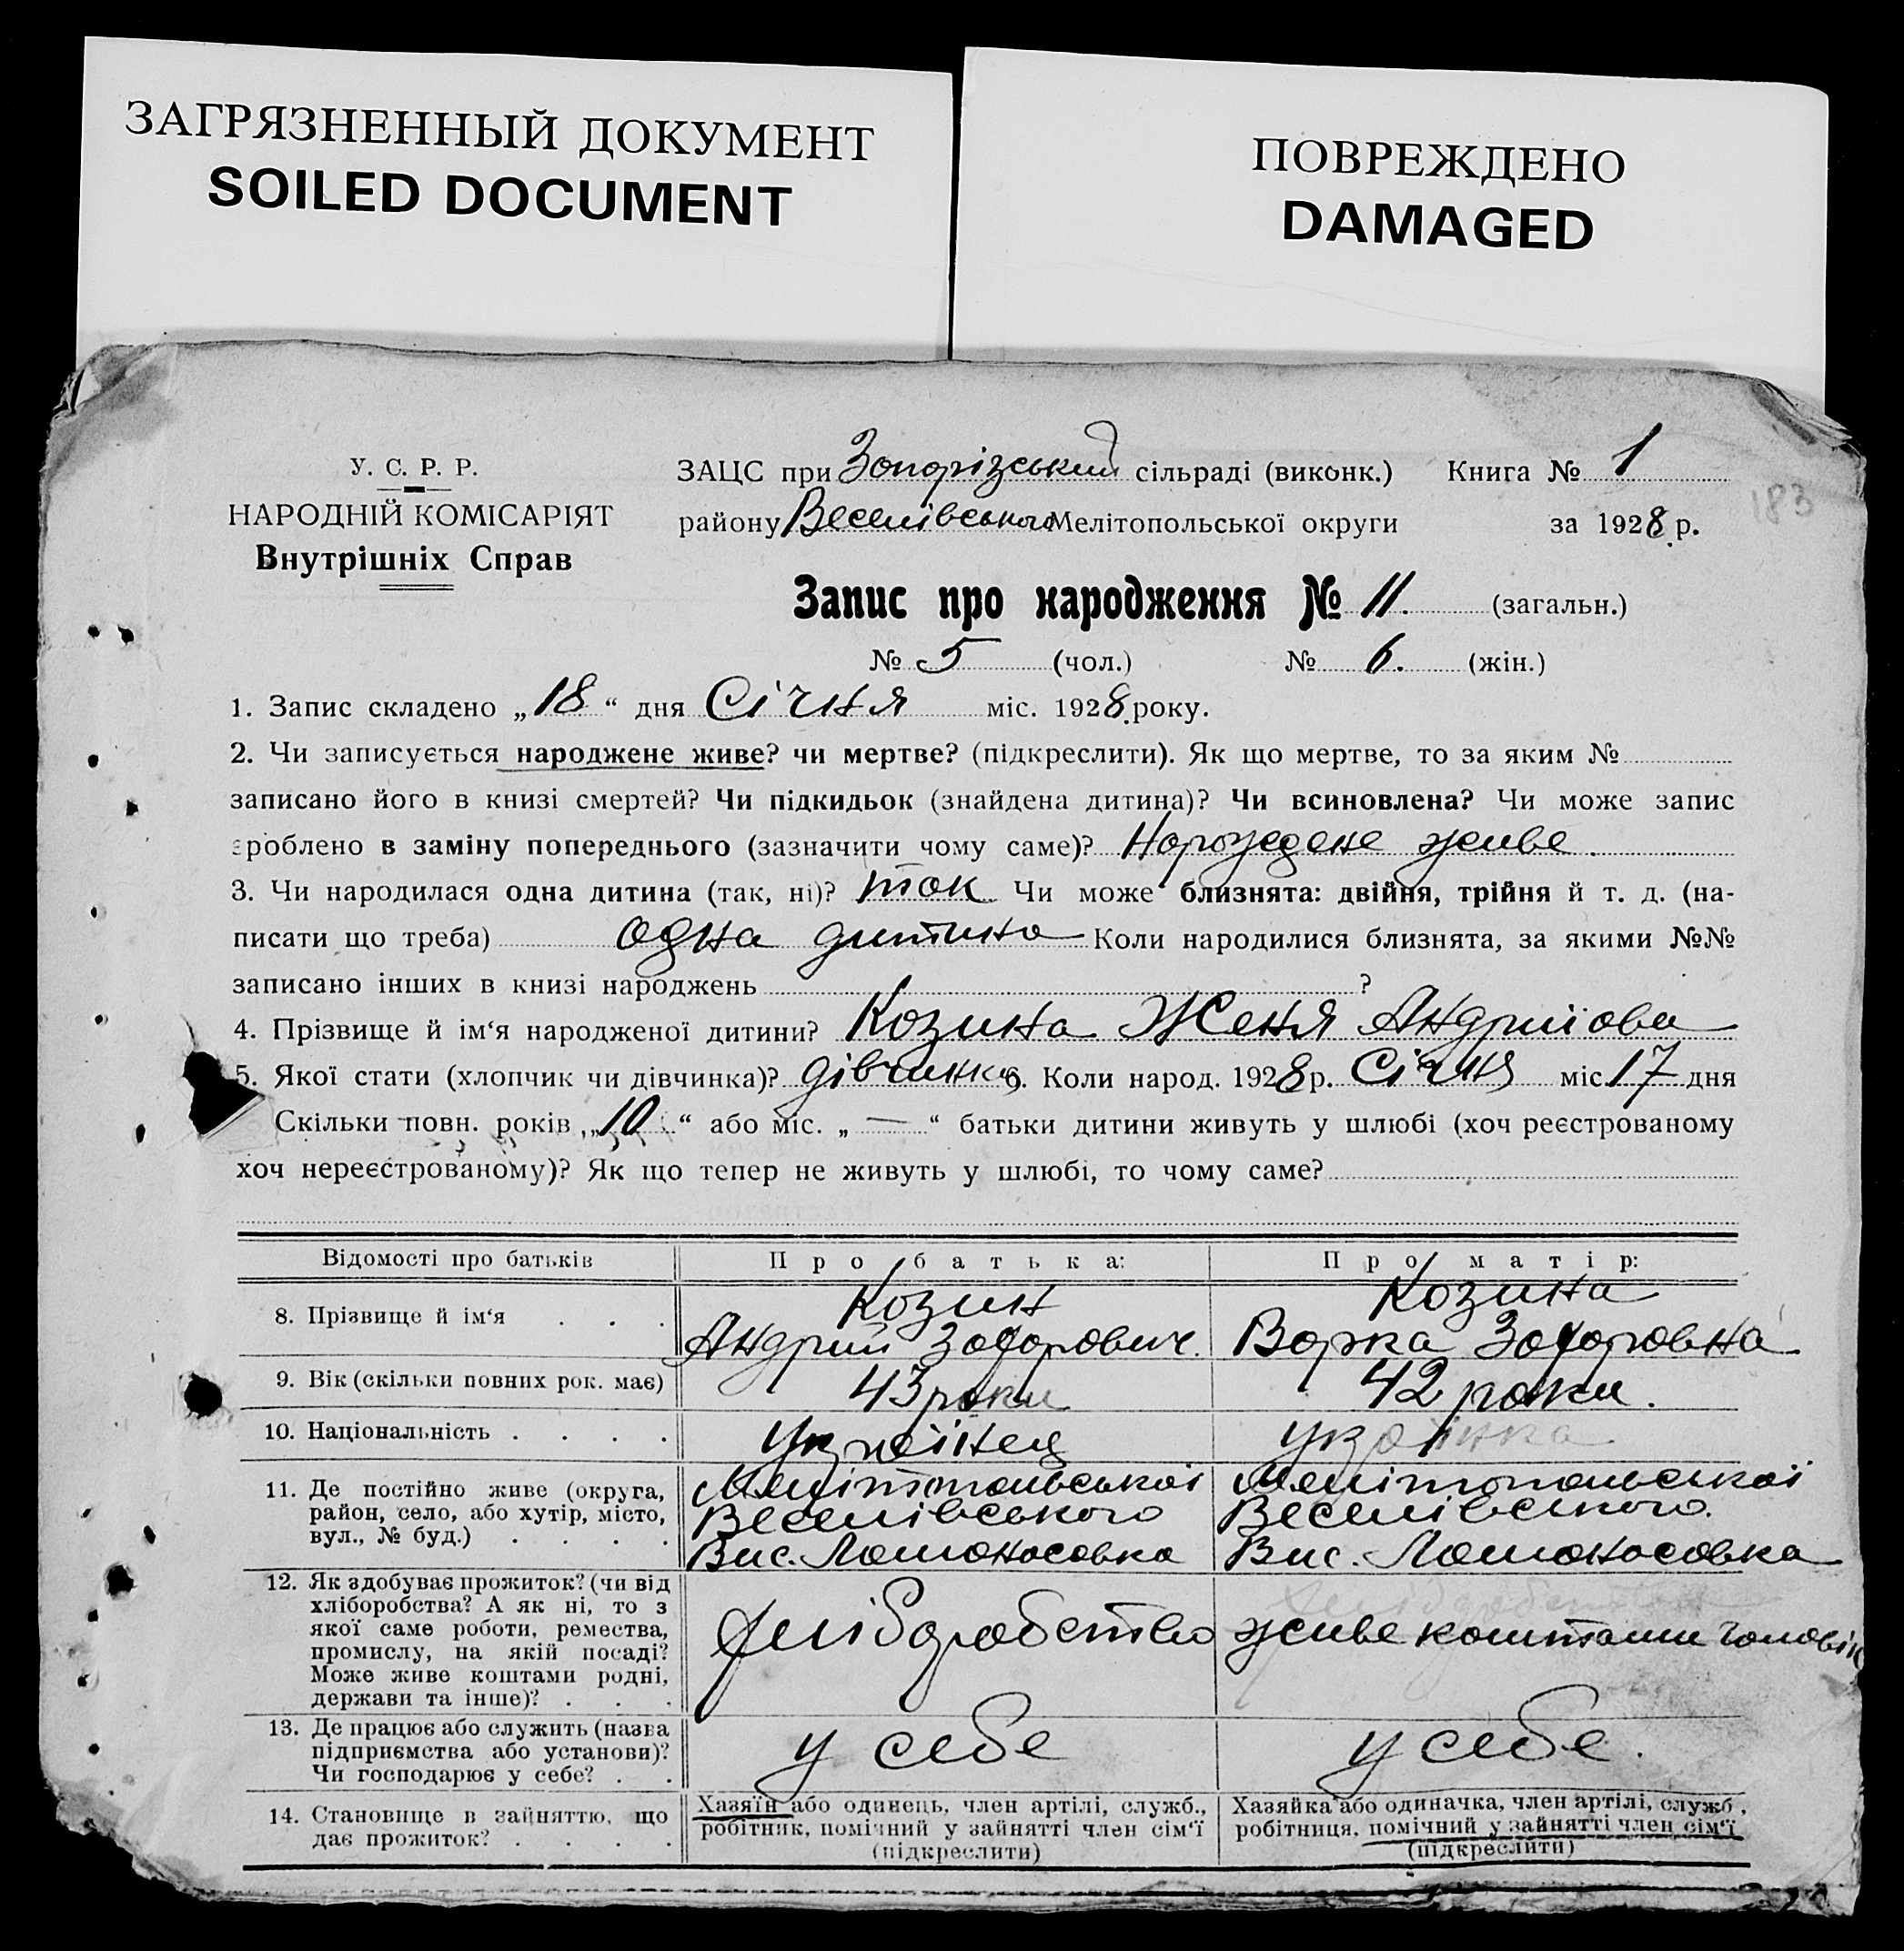 ЗАГРЯЗНЕННЫЙ ДОКУМЕНТ
SOILED DOCUMENT
ПОВРЕЖДЕНО
DAMAGED
У. С. Р. Р.
НАРОДНІЙ КОМІСАРІЯТ
Внутрішніх Справ
ЗАЦС при Запорізський сільраді (виконк.) Книга № 1
району Веселівського Мелітопольської округи за 1928 р.
183
Запис про народження № 11. (загальн.)
№ 5 (чол.) № 6. (жін.)
1. Запис складено „18“ дня Січня міс. 1928 року.
2. Чи записується народжене живе? чи мертве? (підкреслити). Як що мертве, то за яким №
записано його в книзі смертей? Чи підкидьок (знайдена дитина)? Чи всиновлена? Чи може запис
зроблено в заміну попереднього (зазначити чому саме)? Народжене живе.
3. Чи народилася одна дитина (так, ні)? так Чи може близнята: двійня, трійня й т. д. (на-
писати що треба) одна дитина Коли народилися близнята, за якими №№
записано інших в книзі народжень ?
4. Прізвище й ім‘я народженої дитини? Козина Женя Андриїова
5. Якої стати (хлопчик чи дівчинка)? дівчинка 6. Коли народ. 1928 р. Січня міс. 17 дня
Скільки повн. років „10“ або міс. „—“ батьки дитини живуть у шлюбі (хоч реєстрованому
хоч нереєстрованому)? Як що тепер не живуть у шлюбі, то чому саме?
Відомості про батьків Про батька: Про матір:
8. Прізвище й ім‘я . . .
Козин
Андрий Захарович.
Козина
Варка Захаровна
9. Вік (скільки повних рок. має) 43 роки 42 роки.
10. Національність . . . . українец українка
11. Де постійно живе (округа,
район, село, або хутір, місто,
вул., № буд.) . . . .
Мелітопольської
Веселівського
Вис. Ломоносовка
Мелітопольської
Веселівського.
Вис. Ломоносовка
12. Як здобуває прожиток? (чи від
хліборобства? А як ні, то з
якої саме роботи, ремества,
промислу, на якій посаді?
Може живе коштами родні,
держави та інше)? . . .
хліборобство
живе коштами чоловік
13. Де працює або служить (назва
підприємства або установи)?
Чи господарює у себе? . .
у себе
у себе.
14. Становище в зайняттю, що
дає прожиток? . . . .
Хазяїн або одинець, член артілі, служб.,
робітник, помічний у зайнятті член сім‘ї
(підкреслити)
Хазяйка або одиначка, член артілі, служб.,
робітниця, помічний у зайнятті член сім‘ї
(підкреслити)